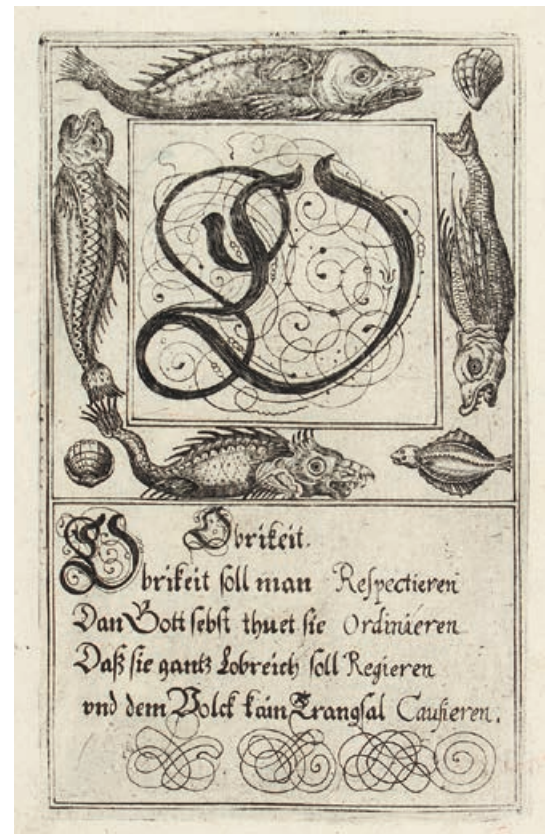 O
Obrikeit.
Obrikeit soll man Respectieren
Dan Gott selbst thuet sie Ordinieren
Daß sie gantz Lobreich soll Regieren
vnd dem Volck kain Trangsal Causieren.